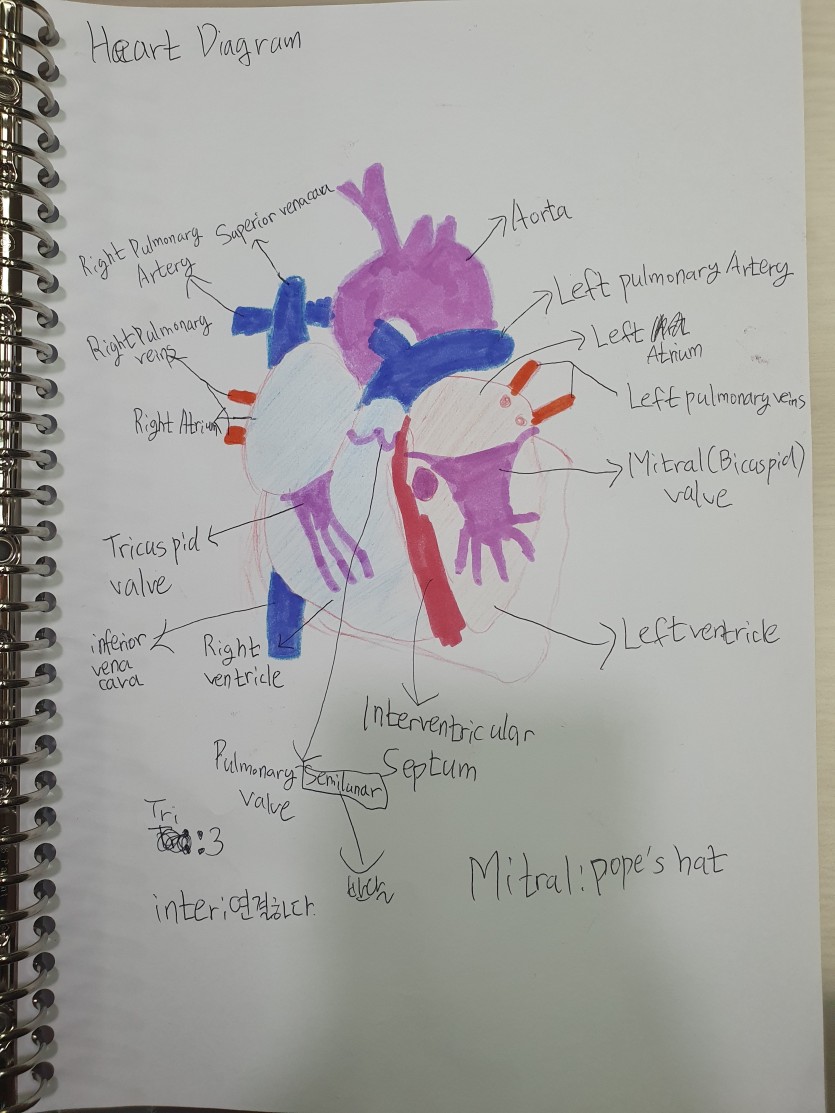 Heart Diagram
Superior venacava
Right Pulmonary
Artery
Aorta
Left pulmonary Artery
Right Pulmonary
veins
Left
Atrium
Left pulmonary veins
Right Atrium
Mitral(Bicaspid)
valve
Tricuspid
valve
inferior
vena
cava
Right
ventricle
Left ventricle
Interventricular
Septum
Pulmonary
valve
Semilunar
Tri
:3
반달
Mitral: pope's hat
inter:연결하다.